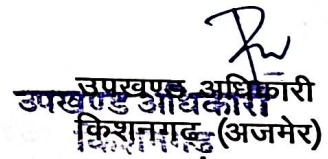 उपखण्ड अधिकारी
उपखण्ड अधिकारी
किशनगढ़ (अजमेर)
किशनगढ़